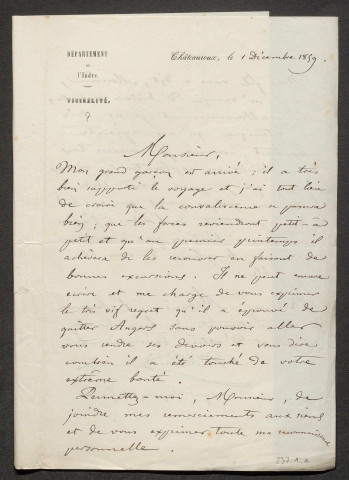 DÉPARTEMENT
de
l'Indre.
VICINALITÉ.
Châteauroux, le 1 Décembre 1859.
Monsieur,
Mon grand garçon est arrivé ; il a très
bien supporté le voyage et j'ai tout lieu
de croire que la convalescence se passera
bien ; que les forces reviendront petit-à
petit et qu'au premier printemps il
achèvera de les recouvrer en faisant de
bonnes excursions. Il ne peut encore
écrire et me charge de vous exprimer
le très vif regret qu'il a éprouvé de
quitter Angers sans pouvoir aller
vous rendre ses devoirs et vous dire
combien il a été touché de votre
extrême bonté.
Permettez-moi, Monsieur, de
joindre mes remerciements aux siens
et de vous exprimer toute ma reconnaissance
personnelle.